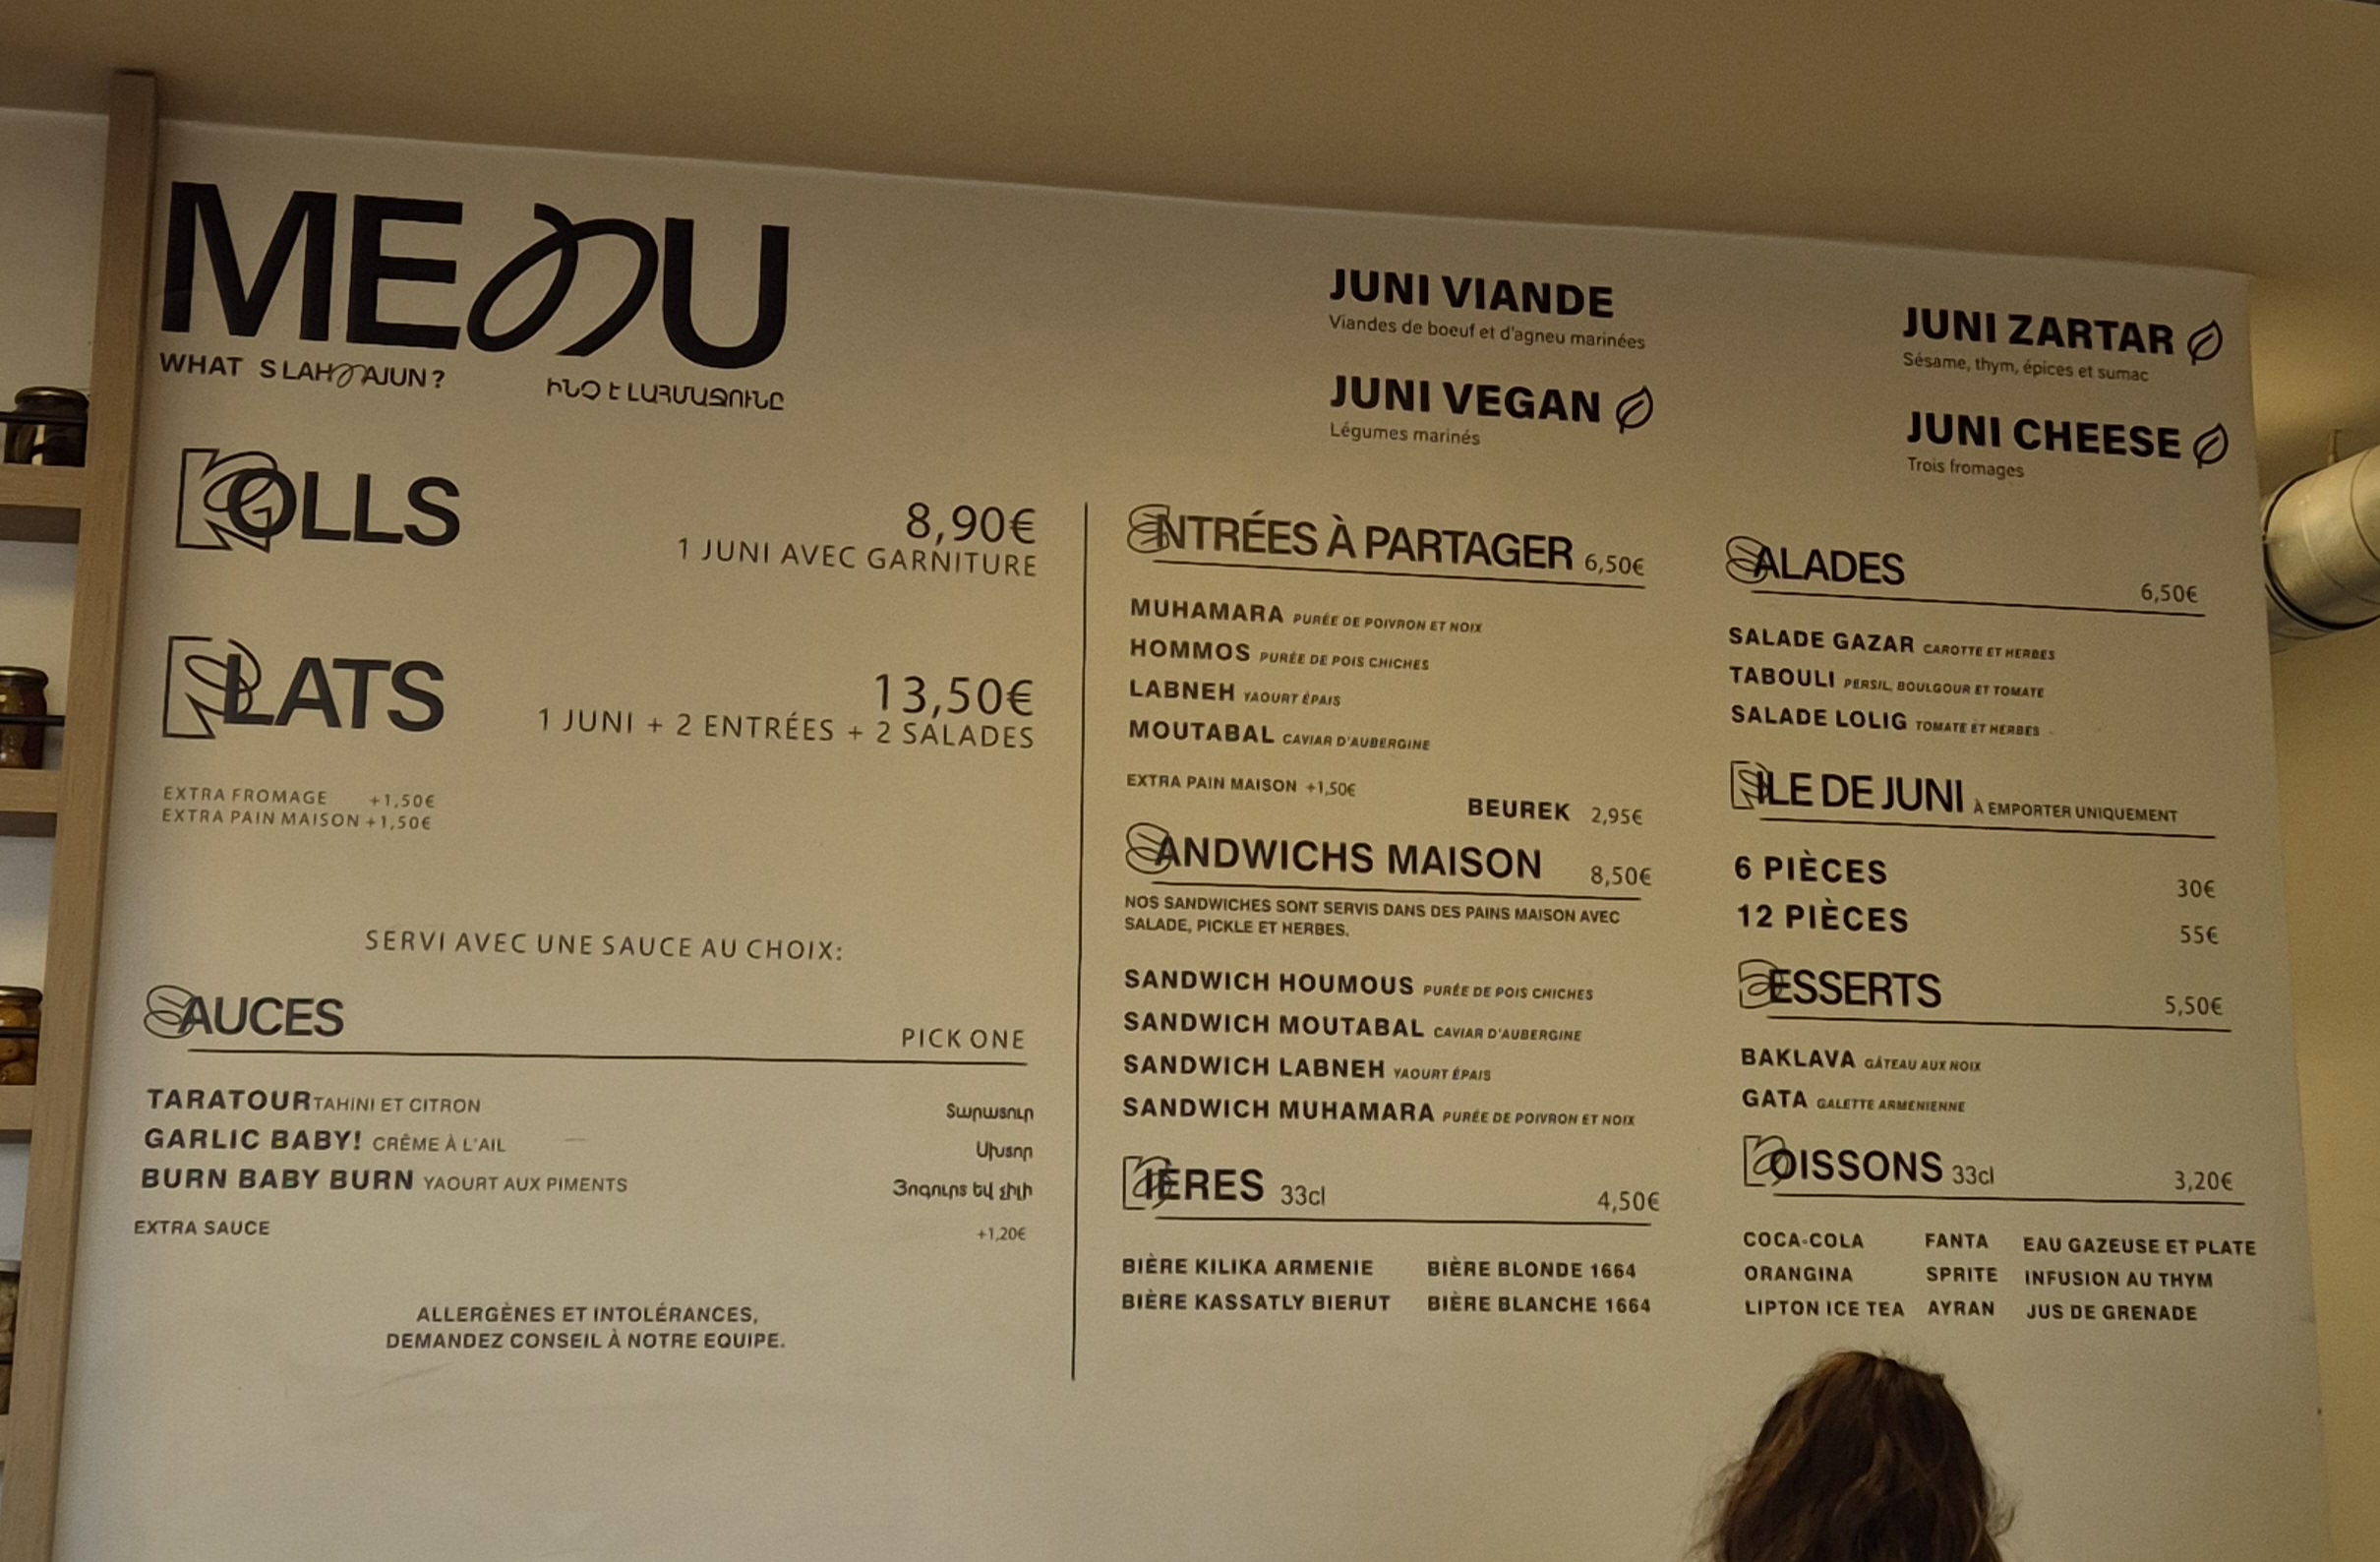 MENU
WHAT S LAHMAJUN?
ԻՆՉ Է ԼԱՀՄԱՋՈՒՆԸ
JUNI VIANDE
Viandes de boeuf et d'agneu marinées
JUNI VEGAN
Légumes marinés
JUNI ZARTAR
Sésame, thym, épices et sumac
JUNI CHEESE
Trois fromages
ROLLS
8,90€
1 JUNI AVEC GARNITURE
PLATS
13,50€
1 JUNI + 2 ENTRÉES + 2 SALADES
EXTRA FROMAGE +1,50€
EXTRA PAIN MAISON +1,50€
SERVI AVEC UNE SAUCE AU CHOIX:
SAUCES PICK ONE
TARATOUR TAHINI ET CITRON Տարատուր
GARLIC BABY! CRÊME À L'AIL Սխտոր
BURN BABY BURN YAOURT AUX PIMENTS Յոգուրտ եվ չիլի
EXTRA SAUCE +1,20€
ALLERGÈNES ET INTOLÉRANCES,
DEMANDEZ CONSEIL À NOTRE EQUIPE.
ENTRÉES À PARTAGER 6,50€
MUHAMARA PURÉE DE POIVRON ET NOIX
HOMMOS PURÉE DE POIS CHICHES
LABNEH YAOURT ÉPAIS
MOUTABAL CAVIAR D'AUBERGINE
EXTRA PAIN MAISON +1,50€
BEUREK 2,95€
SANDWICHS MAISON 8,50€
NOS SANDWICHES SONT SERVIS DANS DES PAINS MAISON AVEC
SALADE, PICKLE ET HERBES.
SANDWICH HOUMOUS PURÉE DE POIS CHICHES
SANDWICH MOUTABAL CAVIAR D'AUBERGINE
SANDWICH LABNEH YAOURT ÉPAIS
SANDWICH MUHAMARA PURÉE DE POIVRON ET NOIX
BIÈRES 33cl 4,50€
BIÈRE KILIKA ARMENIE BIÈRE BLONDE 1664
BIÈRE KASSATLY BIERUT BIÈRE BLANCHE 1664
SALADES 6,50€
SALADE GAZAR CAROTTE ET HERBES
TABOULI PERSIL, BOULGOUR ET TOMATE
SALADE LOLIG TOMATE ET HERBES
PILE DE JUNI À EMPORTER UNIQUEMENT
6 PIÈCES 30€
12 PIÈCES 55€
DESSERTS 5,50€
BAKLAVA GÂTEAU AUX NOIX
GATA GALETTE ARMENIENNE
BOISSONS 33cl 3,20€
COCA-COLA FANTA EAU GAZEUSE ET PLATE
ORANGINA SPRITE INFUSION AU THYM
LIPTON ICE TEA AYRAN JUS DE GRENADE